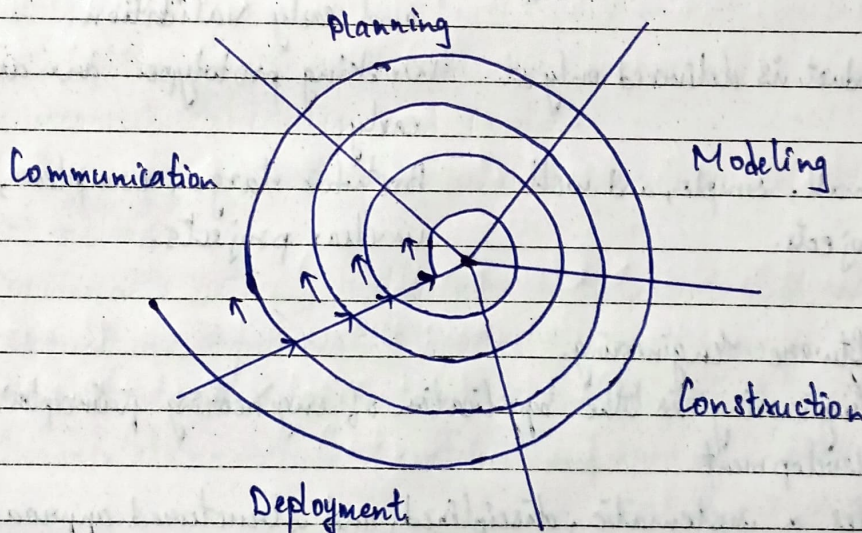 planning
Communication
Modeling
Construction
Deployment